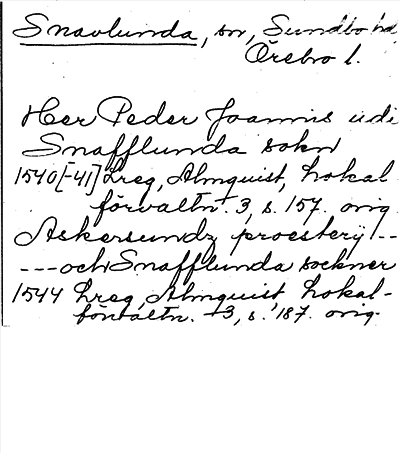 Snavlunda, sn, Sundbo hd
Örebro l.
Herr Peder Joannis udi
Snafflunda sokn
1540[-41] Lreg, Almquist, Lokal
förvaltn +3, s. 157. orig
Askersundz proesterij --
--- och Snafflunda sockner
1544 Lreg, Almquist, Lokal-
förvaltn. +3, s. 187. orig.